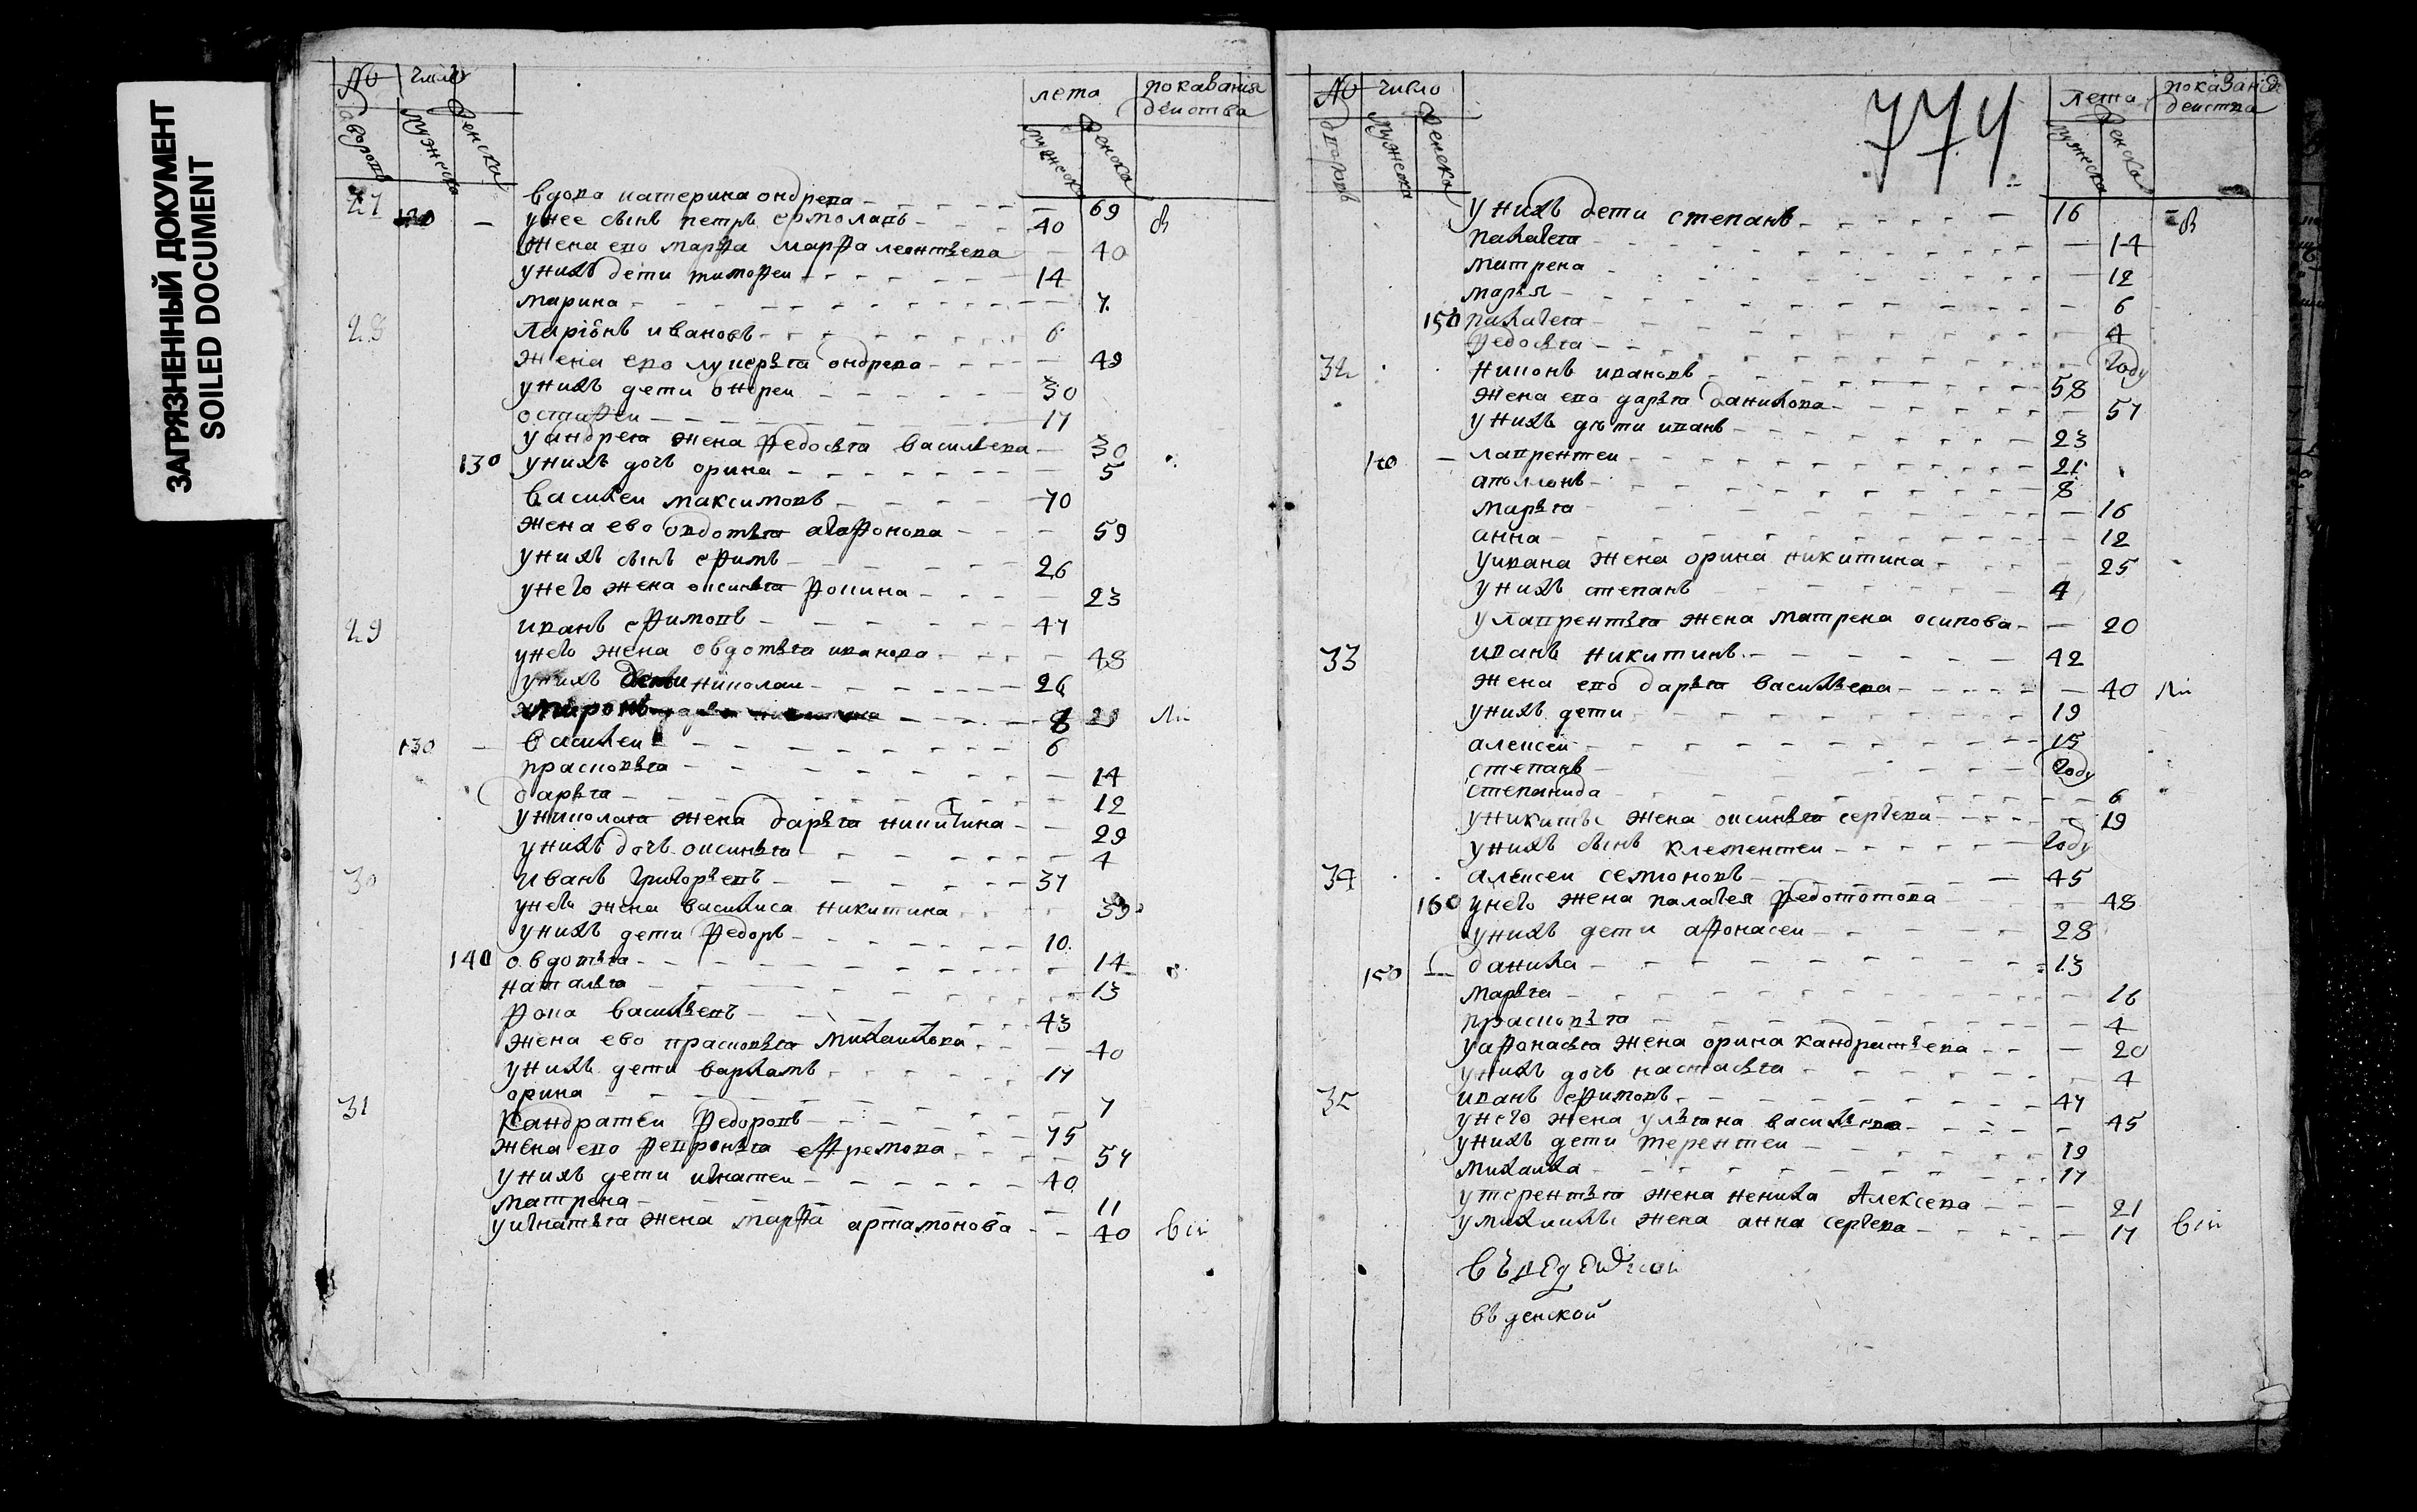 ЗАГРЯЗНЕННЫЙ ДОКУМЕНТ
SOILED DOCUMENT
№ число лета показания
действа
дворовъ мужеска женска мужеска женска
27 вдова катерина ондрева 69
120 — унее сынъ петръ ермолавъ 40 в
жена ево марфа марфа леонтьева — 40
унихъ дети тимофеи 14
марина — 7
28 Ларiонъ ивановъ 6
жена ево лукерья ондрева — 49
унихъ дети онреи 30
остафеи 17
уандрея жена федосья васильева — 30
130 унихъ дочь орина — 5
василеи максимовъ 70
жена ево овдотья агафонова — 59
унихъ сынъ ефимъ 26
унего жена оксинья фокина — 23
29 иванъ ефимовъ 47
унего жена овдотья иванова — 48
унихъ дети николаи 26
миронъ 8 29 ли
130 — василеи 6
прасковья — 14
дарья — 12
униколая жена дарья никитина — 29
унихъ дочь оксинья — 4
30 иванъ григорьевъ 37
унего жена василиса никитина — 39
унихъ дети федоръ 10
140 овдотья — 14
наталья — 13
фока васильевъ 43
жена ево прасковья михаилова — 40
унихъ дети варламъ 17
орина — 7
31 Кандратеи федоровъ 75
жена ево февронья ефремова — 57
унихъ дети игнатеи 40
матрена — 11
уигнатья жена марфа артамонова — 40 вси
№ число 774 лета показание
действа
дворовъ мужеска женска мужеска женска
унихъ дети степанъ 16 — в
палагея — 14
митрена — 12
марья — 6
150 палагея — 4
федосья — году
32 никонъ ивановъ 58
жена ево дарья данилова — 57
унихъ дети иванъ 23
140 — лаврентеи 21
аполлонъ 8
марья — 16
анна — 12
уивана жена орина никитина — 25
унихъ степанъ 4
улаврентья жена матрена осипова — 20
33 иванъ никитинъ 42
жена ево дарья васильева — 40 ли
унихъ дети 19
алексеи 15
степанъ году
степанида — 6
уникиты жена оксинья сергева — 19
унихъ сынъ клементеи году
34 алексеи семионовъ 45
160 унего жена палагея федототова — 48
унихъ дети афонасеи 28
150 — данила 13
марья — 16
прасковья — 4
уафонасья жена орина кандратьева — 20
унихъ дочь настасья — 4
35 иванъ ефимовъ 47
унего жена ульяна васильева — 45
унихъ дети терентеи 19
михаила 17
утерентья жена ненила Алексева — 21
умихаилы жена анна сергева — 17 вси
въ денской